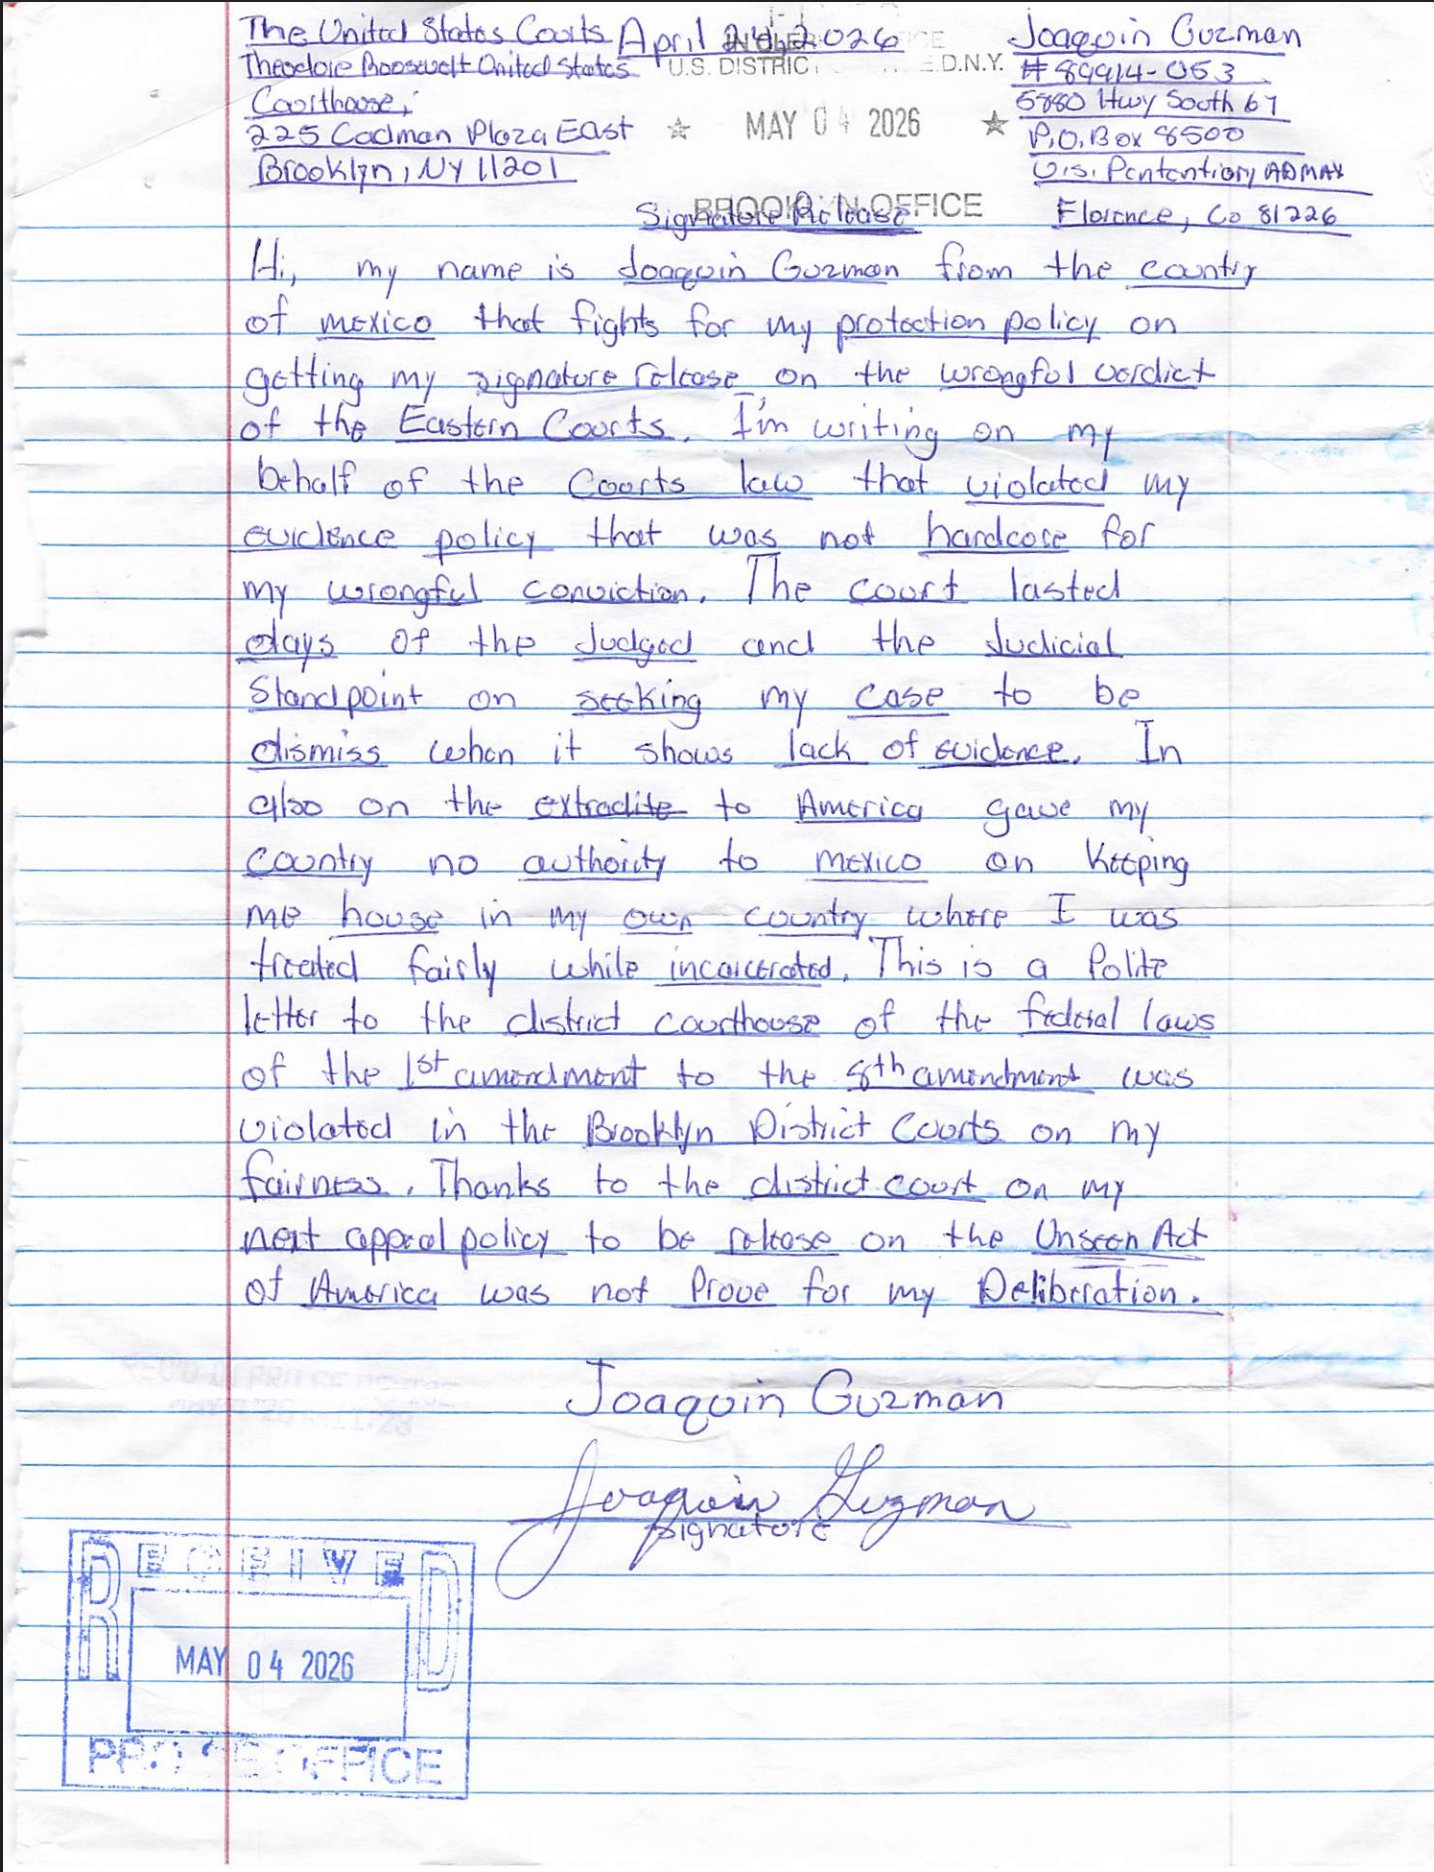 The United States Courts
Theodore Roosevelt United States
Courthouse,
225 Cadman Plaza East
Brooklyn, NY 11201
April 24, 2026
U.S. DISTRIC E.D.N.Y.
★ MAY 04 2026 ★
BROOKLYN OFFICE
Joaquin Guzman
# 89914-053
5880 Hwy South 67
P.O. Box 8500
U.S. Pentantiary ADMAX
Florence, Co 81226
Signature Release
Hi, my name is Joaquin Guzman from the country
of mexico that fights for my protection policy on
getting my signature release on the wrongful verdict
of the Eastern Courts. I'm writing on my
behalf of the Courts law that violated my
evidence policy that was not hardcore for
my wrongful conviction. The court lasted
days of the Judged and the Judicial
Standpoint on seeking my case to be
dismiss when it shows lack of evidence. In
also on the extradite to America gave my
country no authority to mexico on keeping
me house in my own country where I was
treated fairly while incarcerated. This is a Polite
letter to the district courthouse of the federal laws
of the 1st amendment to the 8th amendment was
violated in the Brooklyn District Courts on my
fairness. Thanks to the district court on my
next appeal policy to be release on the Unseen Act
of America was not Prove for my Deliberation.
Joaquin Guzman
Joaquin Guzman
signature
RECEIVED
MAY 04 2026
PRO SE OFFICE